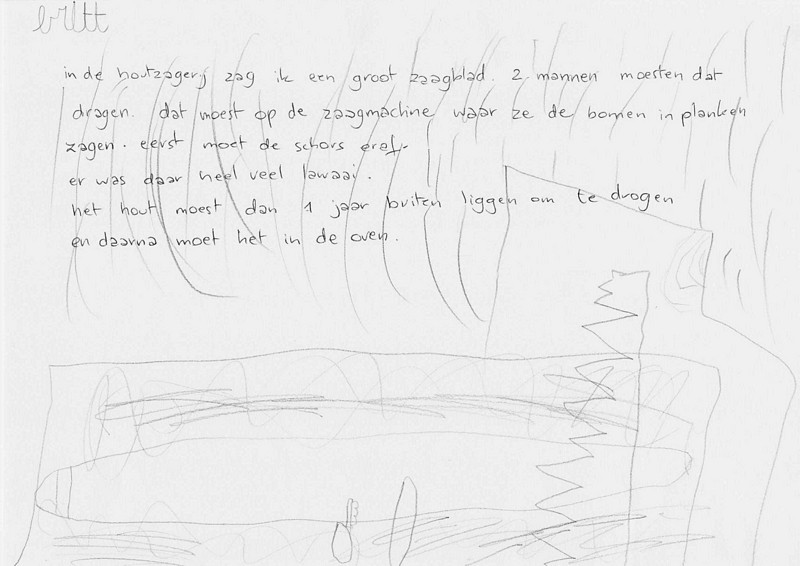 britt
in de houtzagerij zag ik een groot zaagblad. 2 mannen moesten dat
dragen. dat moest op de zaagmachine waar ze de bomen in planken
zagen. eerst moet de schors eraf.
er was daar heel veel lawaai.
het hout moest dan 1 jaar buiten liggen om te drogen
en daarna moet het in de oven.